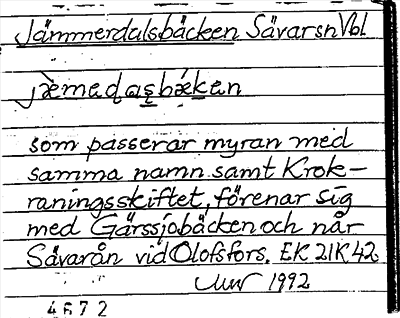 Jämmerdalsbäcken Sävarsn Vbl
jæ̀medaṣbǽkan
som passerar myran med
samma namn samt Krok-
raningsskiftet, förenar sig
med Gärssjöbäcken och når
Sävarån vid Olofsfors. EK 21K 42
1992
4672